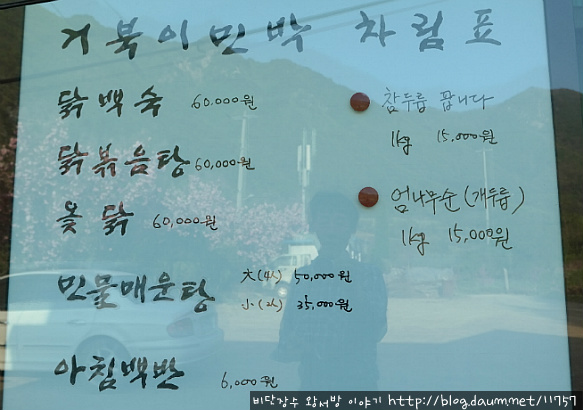 거북이민박 차림표
닭백숙 60,000원
닭볶음탕 60,000원
옻닭 60,000원
민물매운탕 大(4人) 50,000원
小(2人) 35,000원
아침백반 6,000원
참두릅 팝니다
1kg 15,000원
엄나무순(개두릅)
1kg 15,000원
비단장수 왕서방 이야기 http://blog.daum.net/11757